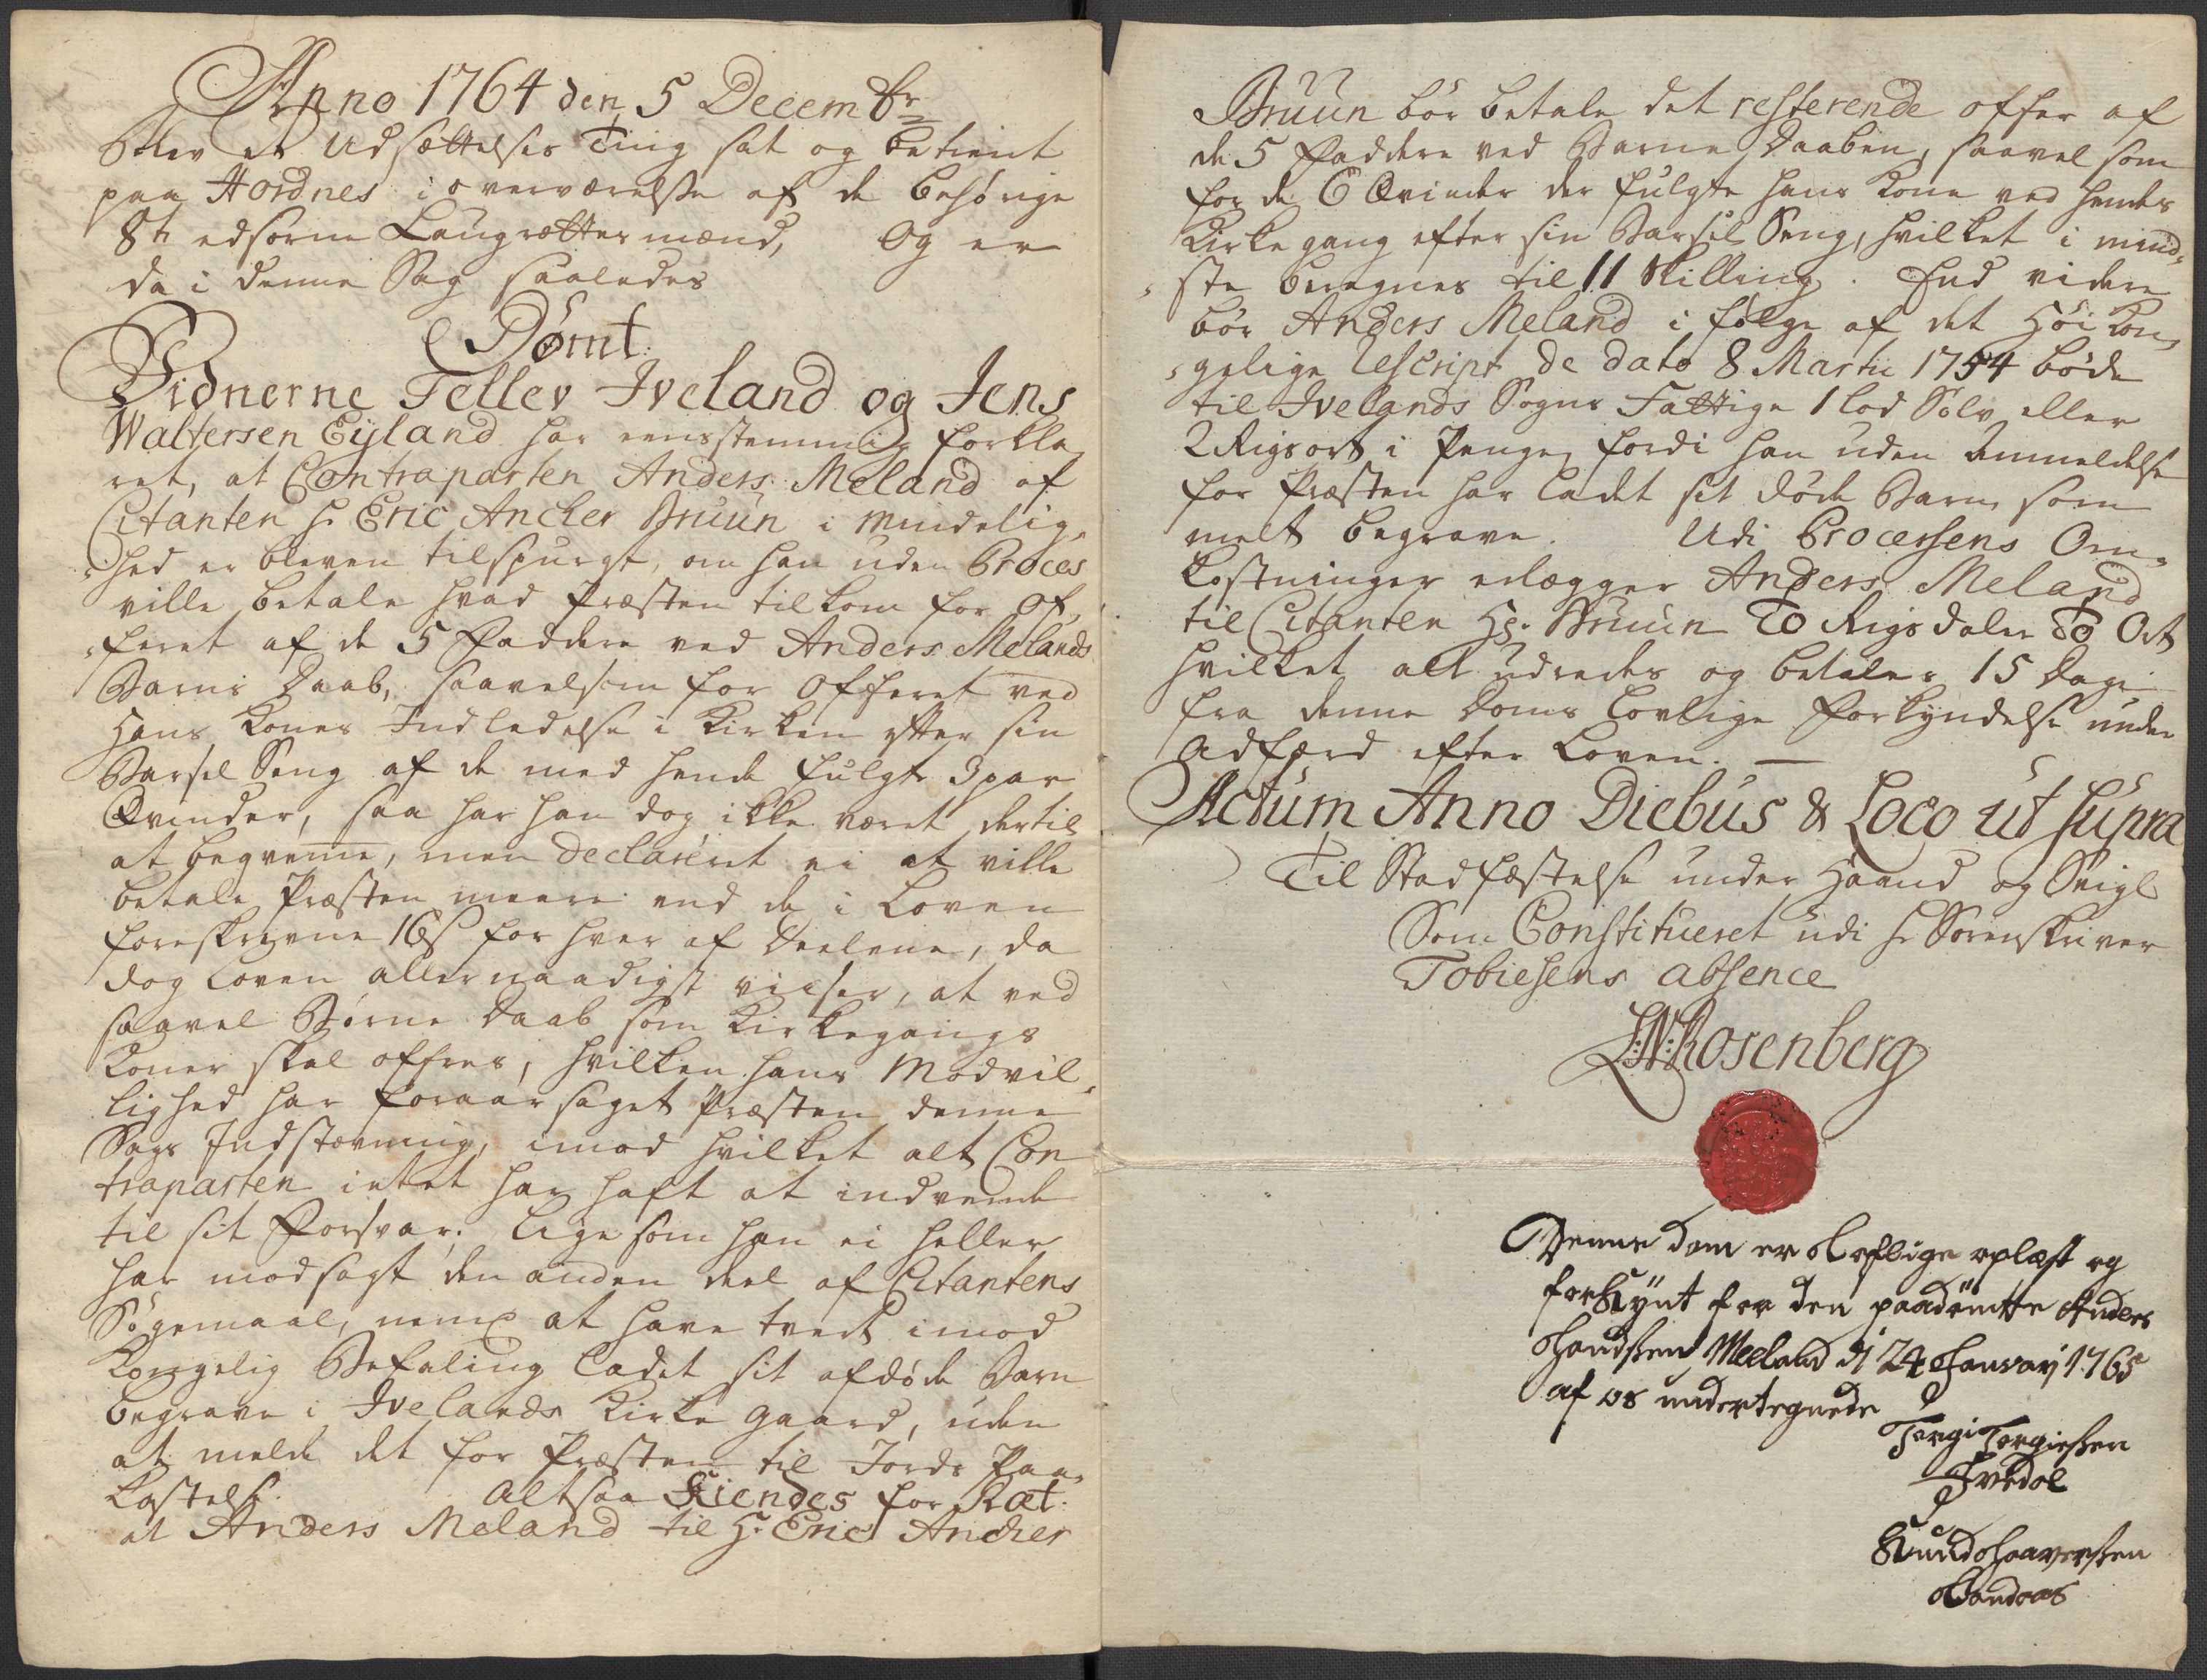 Anno 1764 den 5 Decembr
Blev et Udsættelses Ting sat og betient
paa Hordnes i overværelse af de behørige
8te edsorne Laugrettesmænd, Og er
da i denne Sag saaledes
Dømt
Vidnerne Tellev Iveland og Jens
Waltersen Eyland har eensstemmig forkla
ret, at Contraparten Anders Meland af
Citanten Hr Eric Ancher Bruun i Mindelig,
hed er bleven tilspurgt, om han uden Proces
ville betale hvad Præsten tilkom for Of,
feret af de 5 Faddere ved Anders Melands
Barns Daab, saavelsom for Offeret ved
Hans Kones Indledelse i Kirken efter sin
Barsel Seng af de med hende fulgte 3 par
Qvinder, saa har han dog ikke været dertil
at beqvemme, men declareret ei at ville
betale Præsten meere end de i Loven
foreskrevne 16 s for hver af Deelene, da
dog Loven allernaadigst viiser, at ved
saavel Børne Daab som Kirkegangs
Koner skal offres, hvilken hans Modvil,
lighed har foraarsaget Præsten denne
Sags Indstævning, imod hvilket alt Con
traparten intet har haft at indvende
til sit Forsvar. Lige som han ei heller
har modsagt den anden deel af Citantens
Søgemaal, neml at have tvert imod
Kongelig Befaling ladet sit afdøde Barn
begrave i Ivelands Kirke Gaard, uden
at melde det for Præsten til Jords Paa,
kastelse. Altsaa Kiendes for Ræt:
at Anders Meland til Hr Eric Ancher
Bruun bør betale det resterende offer af
de 5 Faddere ved Barne Daaben, saavel som
for de 6 Qvinder der fulgte hans Kone ved hendes
Kirkegang efter sin Barsel Seng, hvilket i mind,
ste beregnes til 11 Skilling. End videre
bør Anders Meland i følge af det Høi Kon,
gelige Rescript de dato 8 Martii 1754 bøde
til Ivelands Sogns Fattige 1 lod Sølv eller
2 Rigsort i Penge, fordi han uden Anmeldelse
for Præsten har ladet sit døde Barn som
melt begrave. Udi Processens Om,
kostninger erlægger Anders Meland
til Citanten Hr. Bruun To Rigsdaler To Ort
hvilket alt udredes og betales 15 Dage
fra denne Doms lovlige Forkyndelse under
Adfærd efter Loven. —
Actum Anno Diebus & Loco ut supra
Til Stadfæstelse under Haand og Seigl
Som Constitueret udi Hr Sorenskriver
Tobiesens absence
L:N:Rosenberg
Denne dom er Loflige oplæst og
forkÿnt for den paadømtte Anders
Meeland d 24 Januarÿ 1765
af os undertegnede
Torgi Torgiesßen
Ivedal
Knud Haaverßen